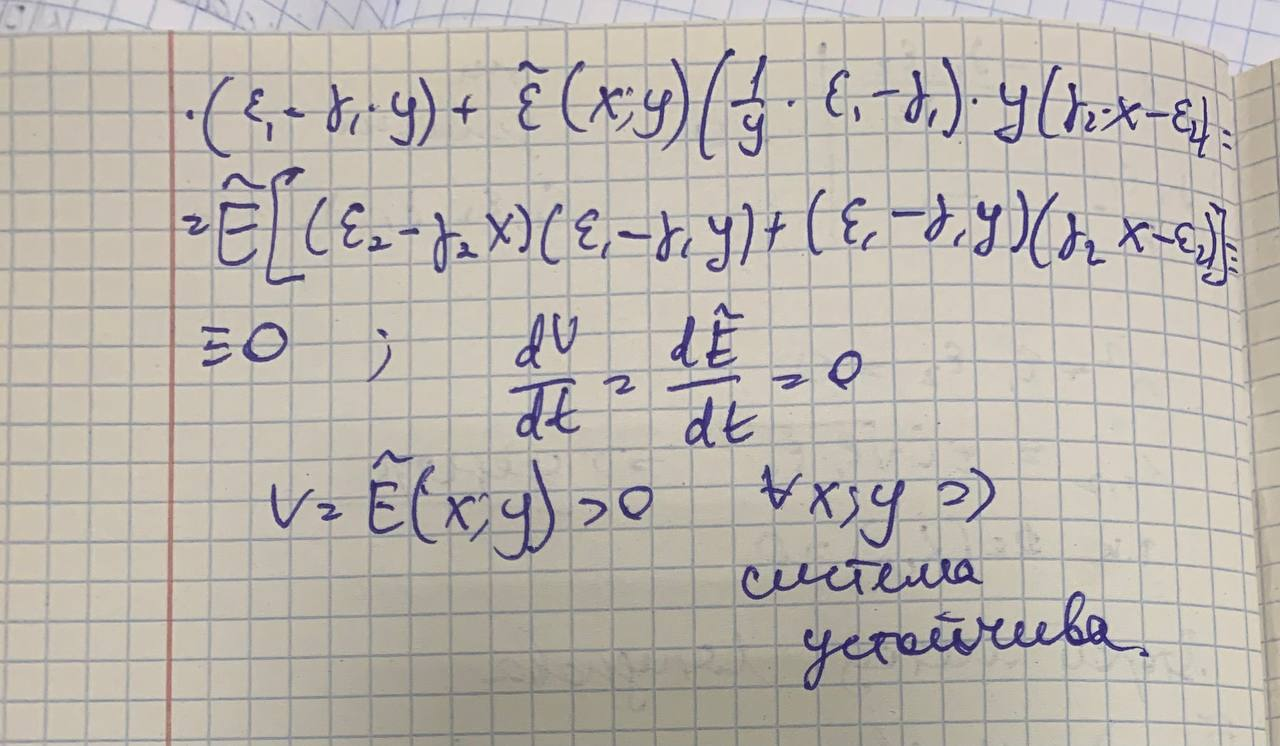 ·(ε₁-γ₁·y)+ ε̃(x;y)(1/y · ε₁-γ₁)·y(γ₂·x-ε₂)=
=Ẽ[(ε₂-γ₂x)(ε₁-γ₁y)+(ε₁-γ₁y)(γ₂x-ε₂)]≡
≡0 ; dV/dt = dẼ/dt = 0
V=Ẽ(x;y)>0 ∀x;y =>
система
устойчива.